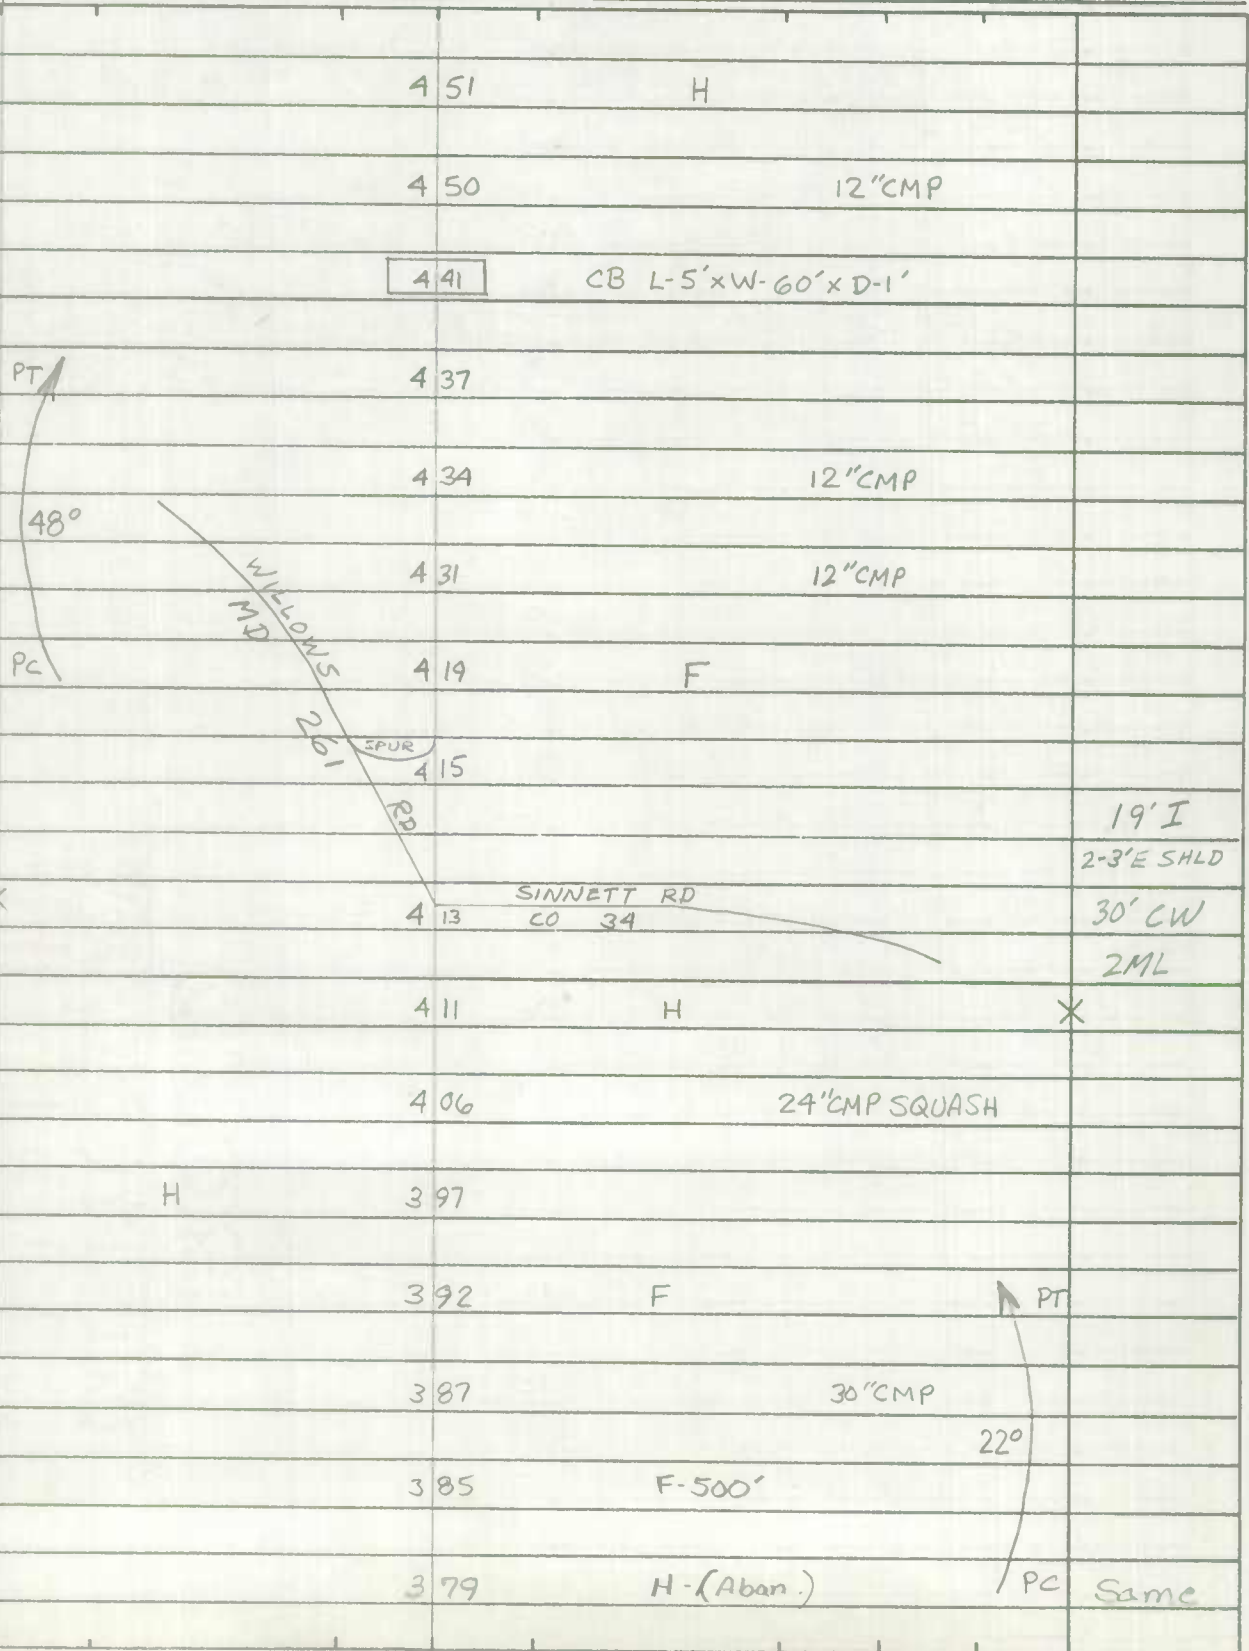 4 51 H
4 50 12"CMP
4 41 CB L-5'xW-60'xD-1'
PT 4 37
4 34 12"CMP
48°
4 31 12"CMP
WILLOWS RD
MD 261
PC 4 19 F
SPUR
4 15
19' I
2-3'E SHLD
SINNETT RD
4 13 CO 34 30' CW
2ML
4 11 H X
4 06 24"CMP SQUASH
H 3 97
3 92 F PT
3 87 30"CMP
22°
3 85 F-500'
3 79 H-(Aban.) PC Same